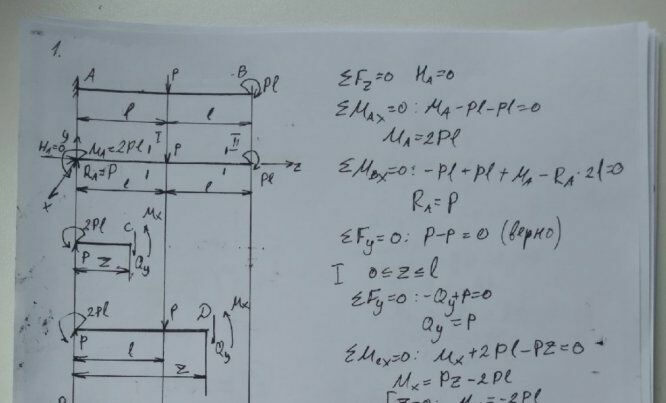 1.
A P B Pl
l l
y I II
H_A=0 M_A=2Pl P z
R_A=P Pl
l l
x
2Pl C M_x
P z Q_y
2Pl P D M_x
P Q_y
l
z
ΣF_z=0 H_A=0
ΣM_Ax=0: M_A-Pl-Pl=0
M_A=2Pl
ΣM_Bx=0: -Pl+Pl+M_A-R_A·2l=0
R_A=P
ΣF_y=0: P-P=0 (верно)
I 0≤z≤l
ΣF_y=0: -Q_y+P=0
Q_y=P
ΣM_cx=0: M_x+2Pl-Pz=0
M_x=Pz-2Pl